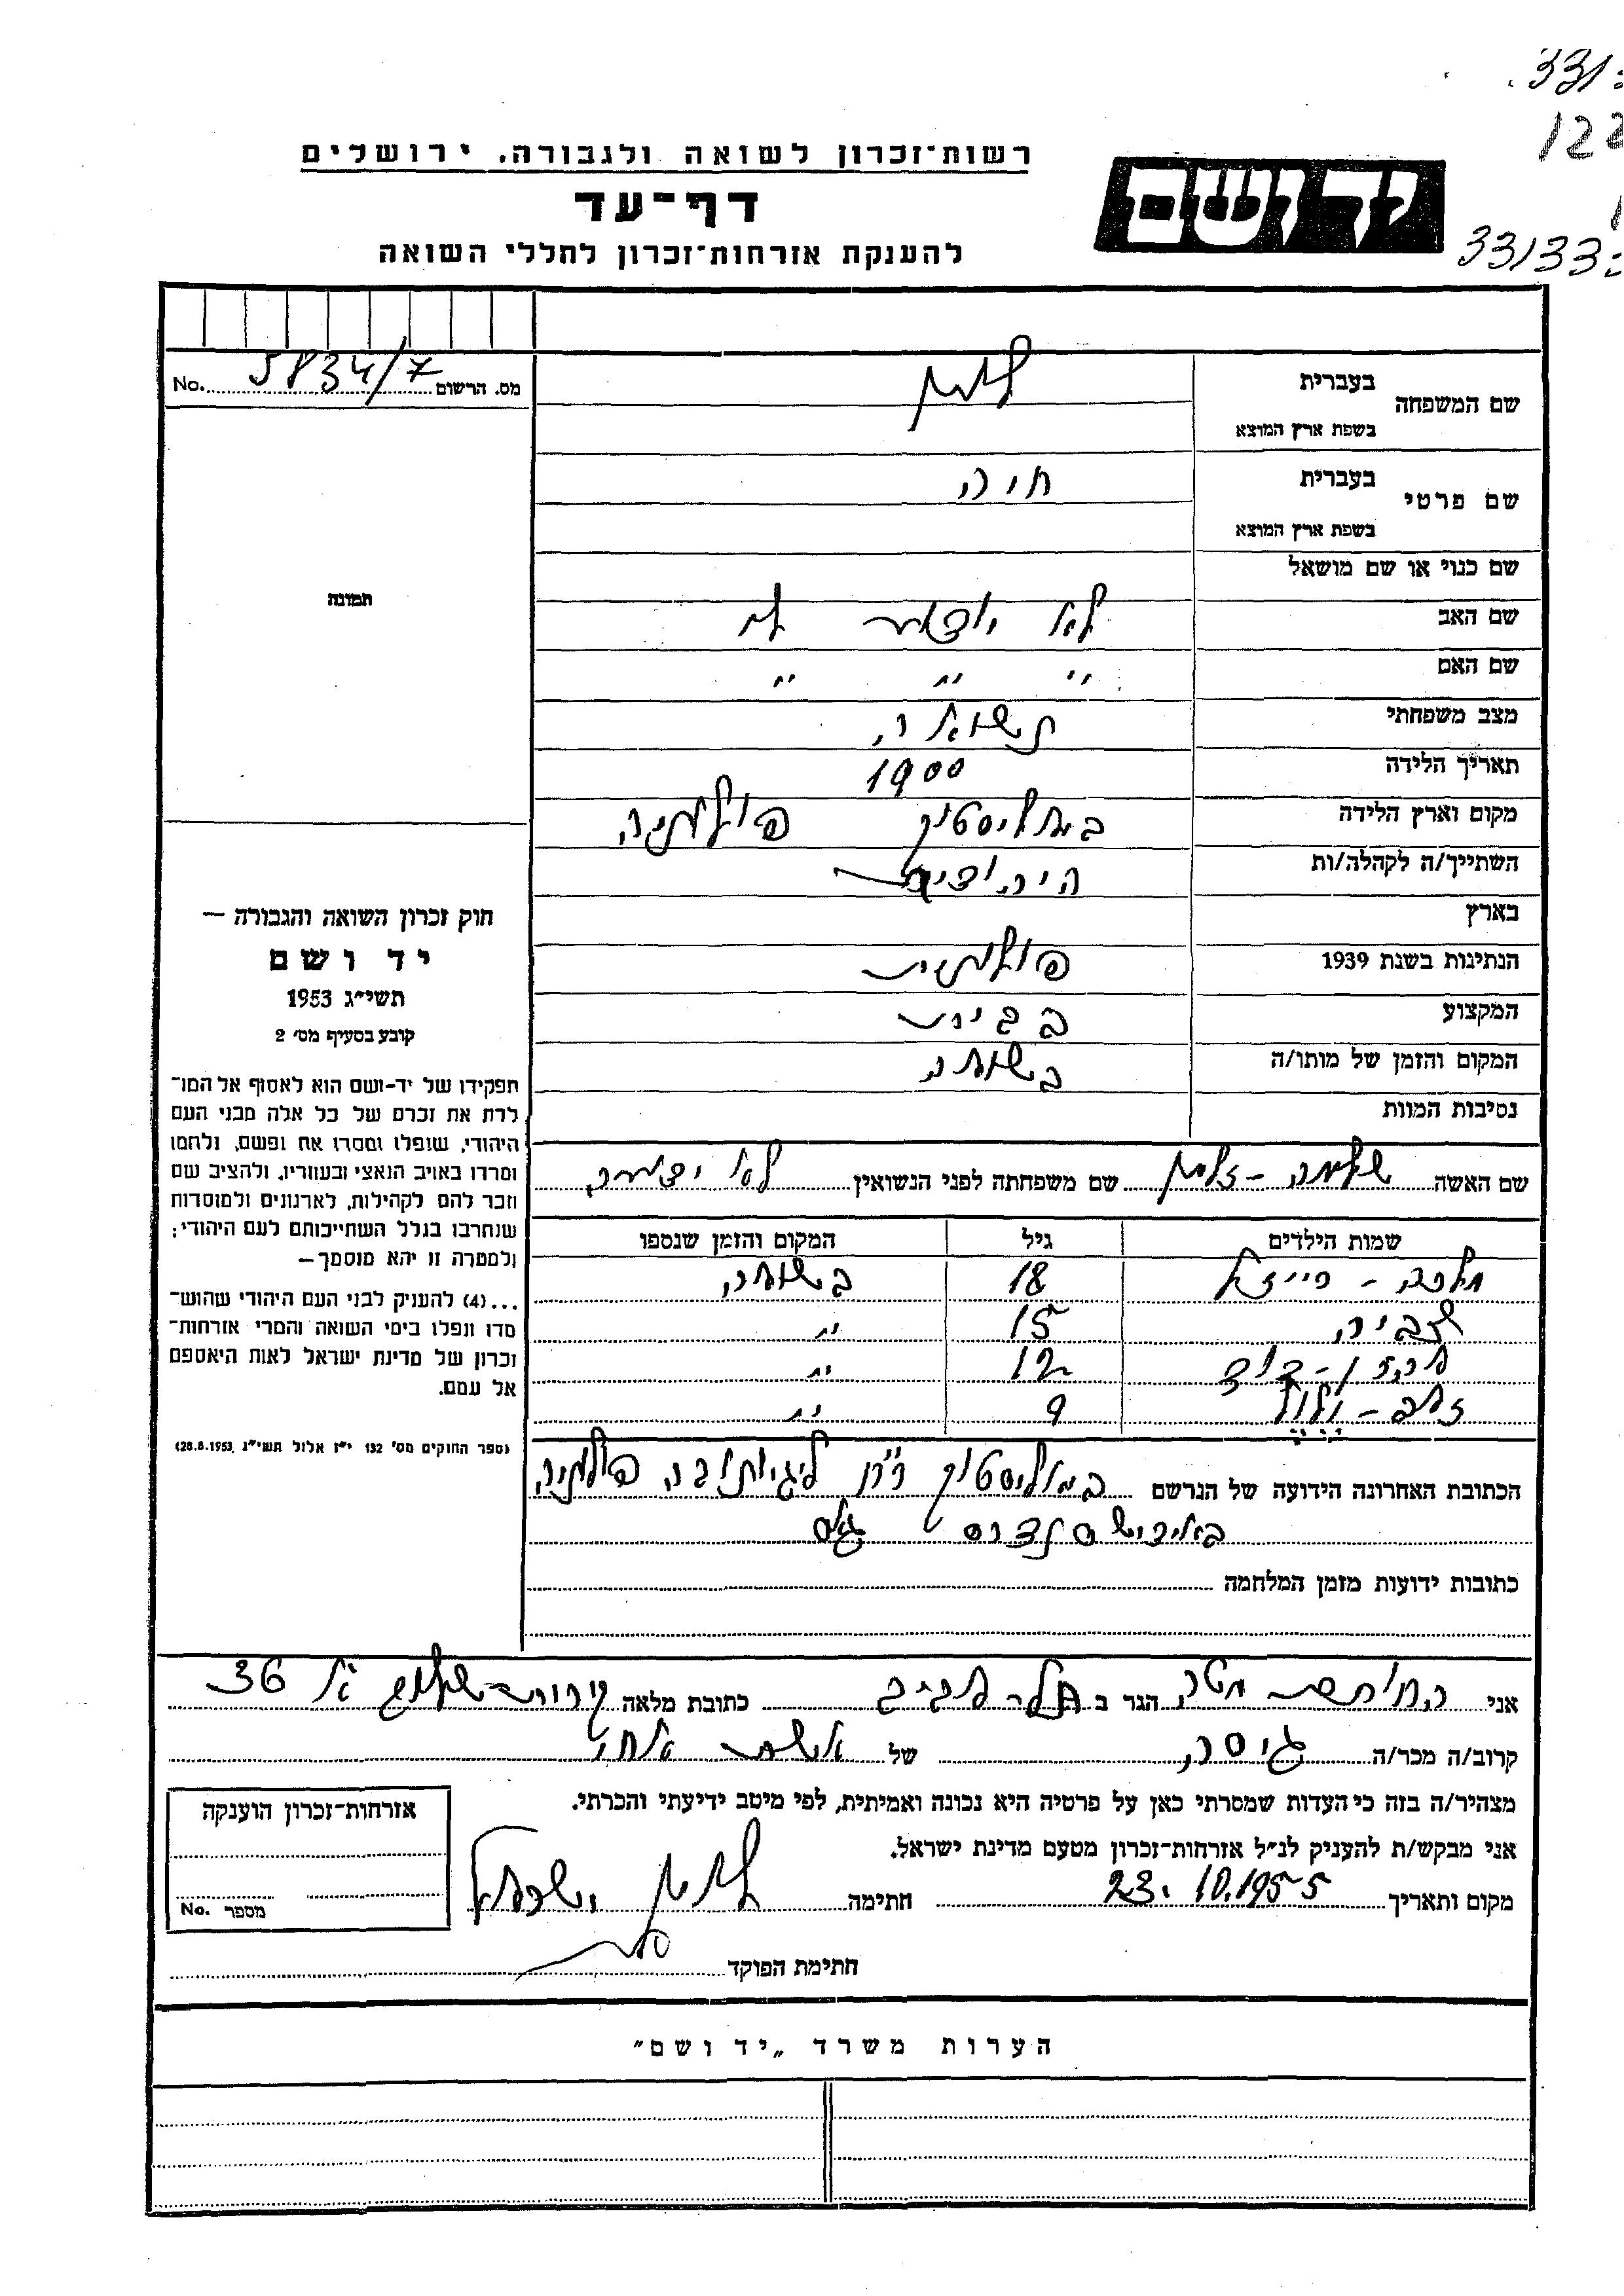 331
122
רשות־זכרון לשואה ולגבורה, ירושלים
יד ושם
דף־עד
33133
להענקת אזרחות־זכרון לחללי השואה
מס. הרשום 5834/7 No.
שם המשפחה
בעברית
בשפת ארץ המוצא
שם פרטי
בעברית חיה
בשפת ארץ המוצא
שם כנוי או שם מושאל
תמונה
שם האב לא יודעת
שם האם " " "
מצב משפחתי נשואה
תאריך הלידה 1900
מקום וארץ הלידה ביאליסטוק פולניה
השתייך/ה לקהלה/ות היהודית
בארץ
הנתינות בשנת 1939 פולנית
המקצוע בבית
המקום והזמן של מותו/ה בשואה
נסיבות המוות
חוק זכרון השואה והגבורה —
יד ושם
תשי״ג 1953
קובע בסעיף מס׳ 2
תפקידו של יד-ושם הוא לאסוף אל המו־
לדת את זכרם של כל אלה מבני העם
היהודי, שנפלו ומסרו את נפשם, נלחמו
ומרדו באויב הנאצי ובעוזריו, ולהציב שם
וזכר להם לקהילות, לארגונים ולמוסדות
שנחרבו בגלל השתייכותם לעם היהודי;
ולמטרה זו יהא מוסמך—
...(4) להעניק לבני העם היהודי שהוש־
מדו ונפלו בימי השואה והמרי אזרחות־
זכרון של מדינת ישראל לאות היאספם
אל עמם.
(ספר החוקים מס׳ 132 י״ז אלול תשי״ג 28.8.1953)
שם האשה שם משפחתה לפני הנשואין לא ידועה
שמות הילדים גיל המקום והזמן שנספו
מלכה - פייזל 18 בשואה
צביה 15 "
אהרן - דוד 12 "
זאב - וולול 9 "
הכתובת האחרונה הידועה של הנרשם ביאליסטוק פולניה
כתובות ידועות מזמן המלחמה
אני החותמת מטה הגר ב תל-אביב כתובת מלאה 36
קרוב/ה מכר/ה גיסה של אשת אחי
מצהיר/ה בזה כי העדות שמסרתי כאן על פרטיה היא נכונה ואמיתית, לפי מיטב ידיעתי והכרתי.
אני מבקש/ת להעניק לנ״ל אזרחות־זכרון מטעם מדינת ישראל.
מקום ותאריך 23.10.1955 חתימה
חתימת הפוקד
אזרחות־זכרון הוענקה
מספר No.
הערות משרד „יד ושם״